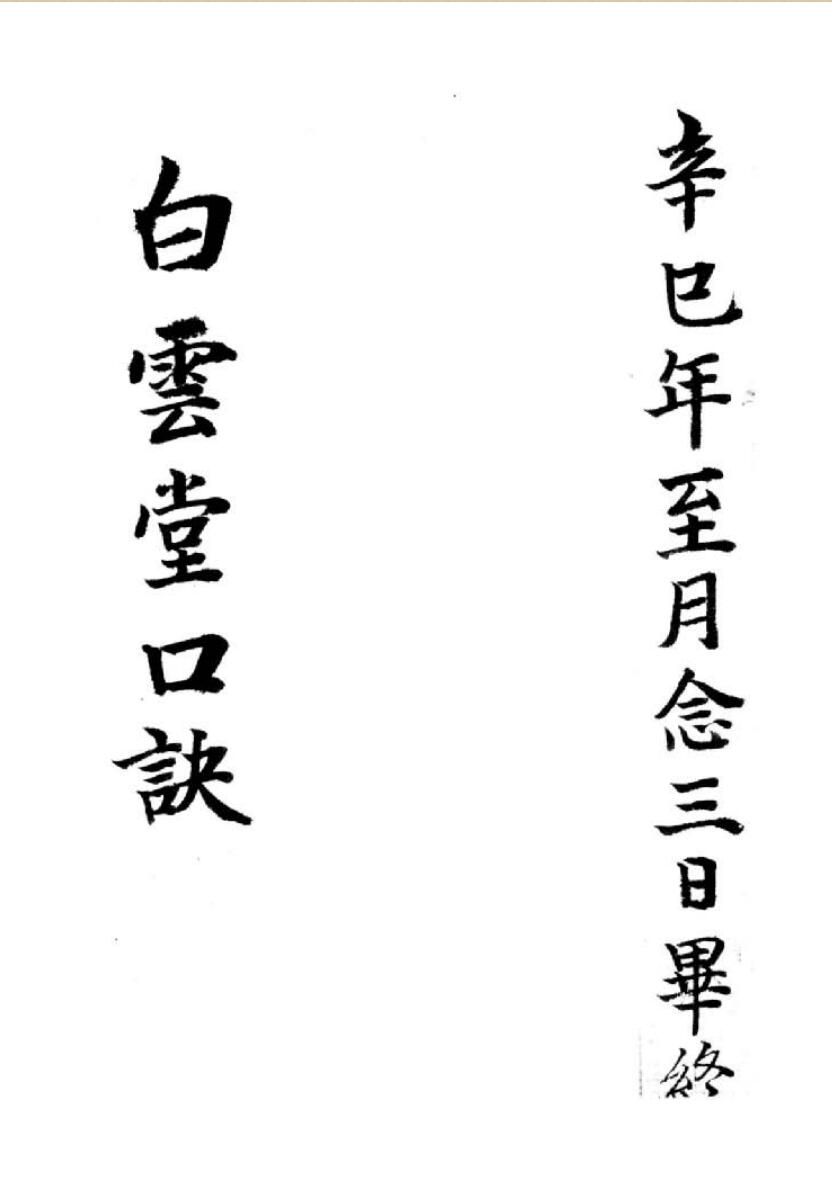 辛巳年至月念三日畢終
白雲堂口訣